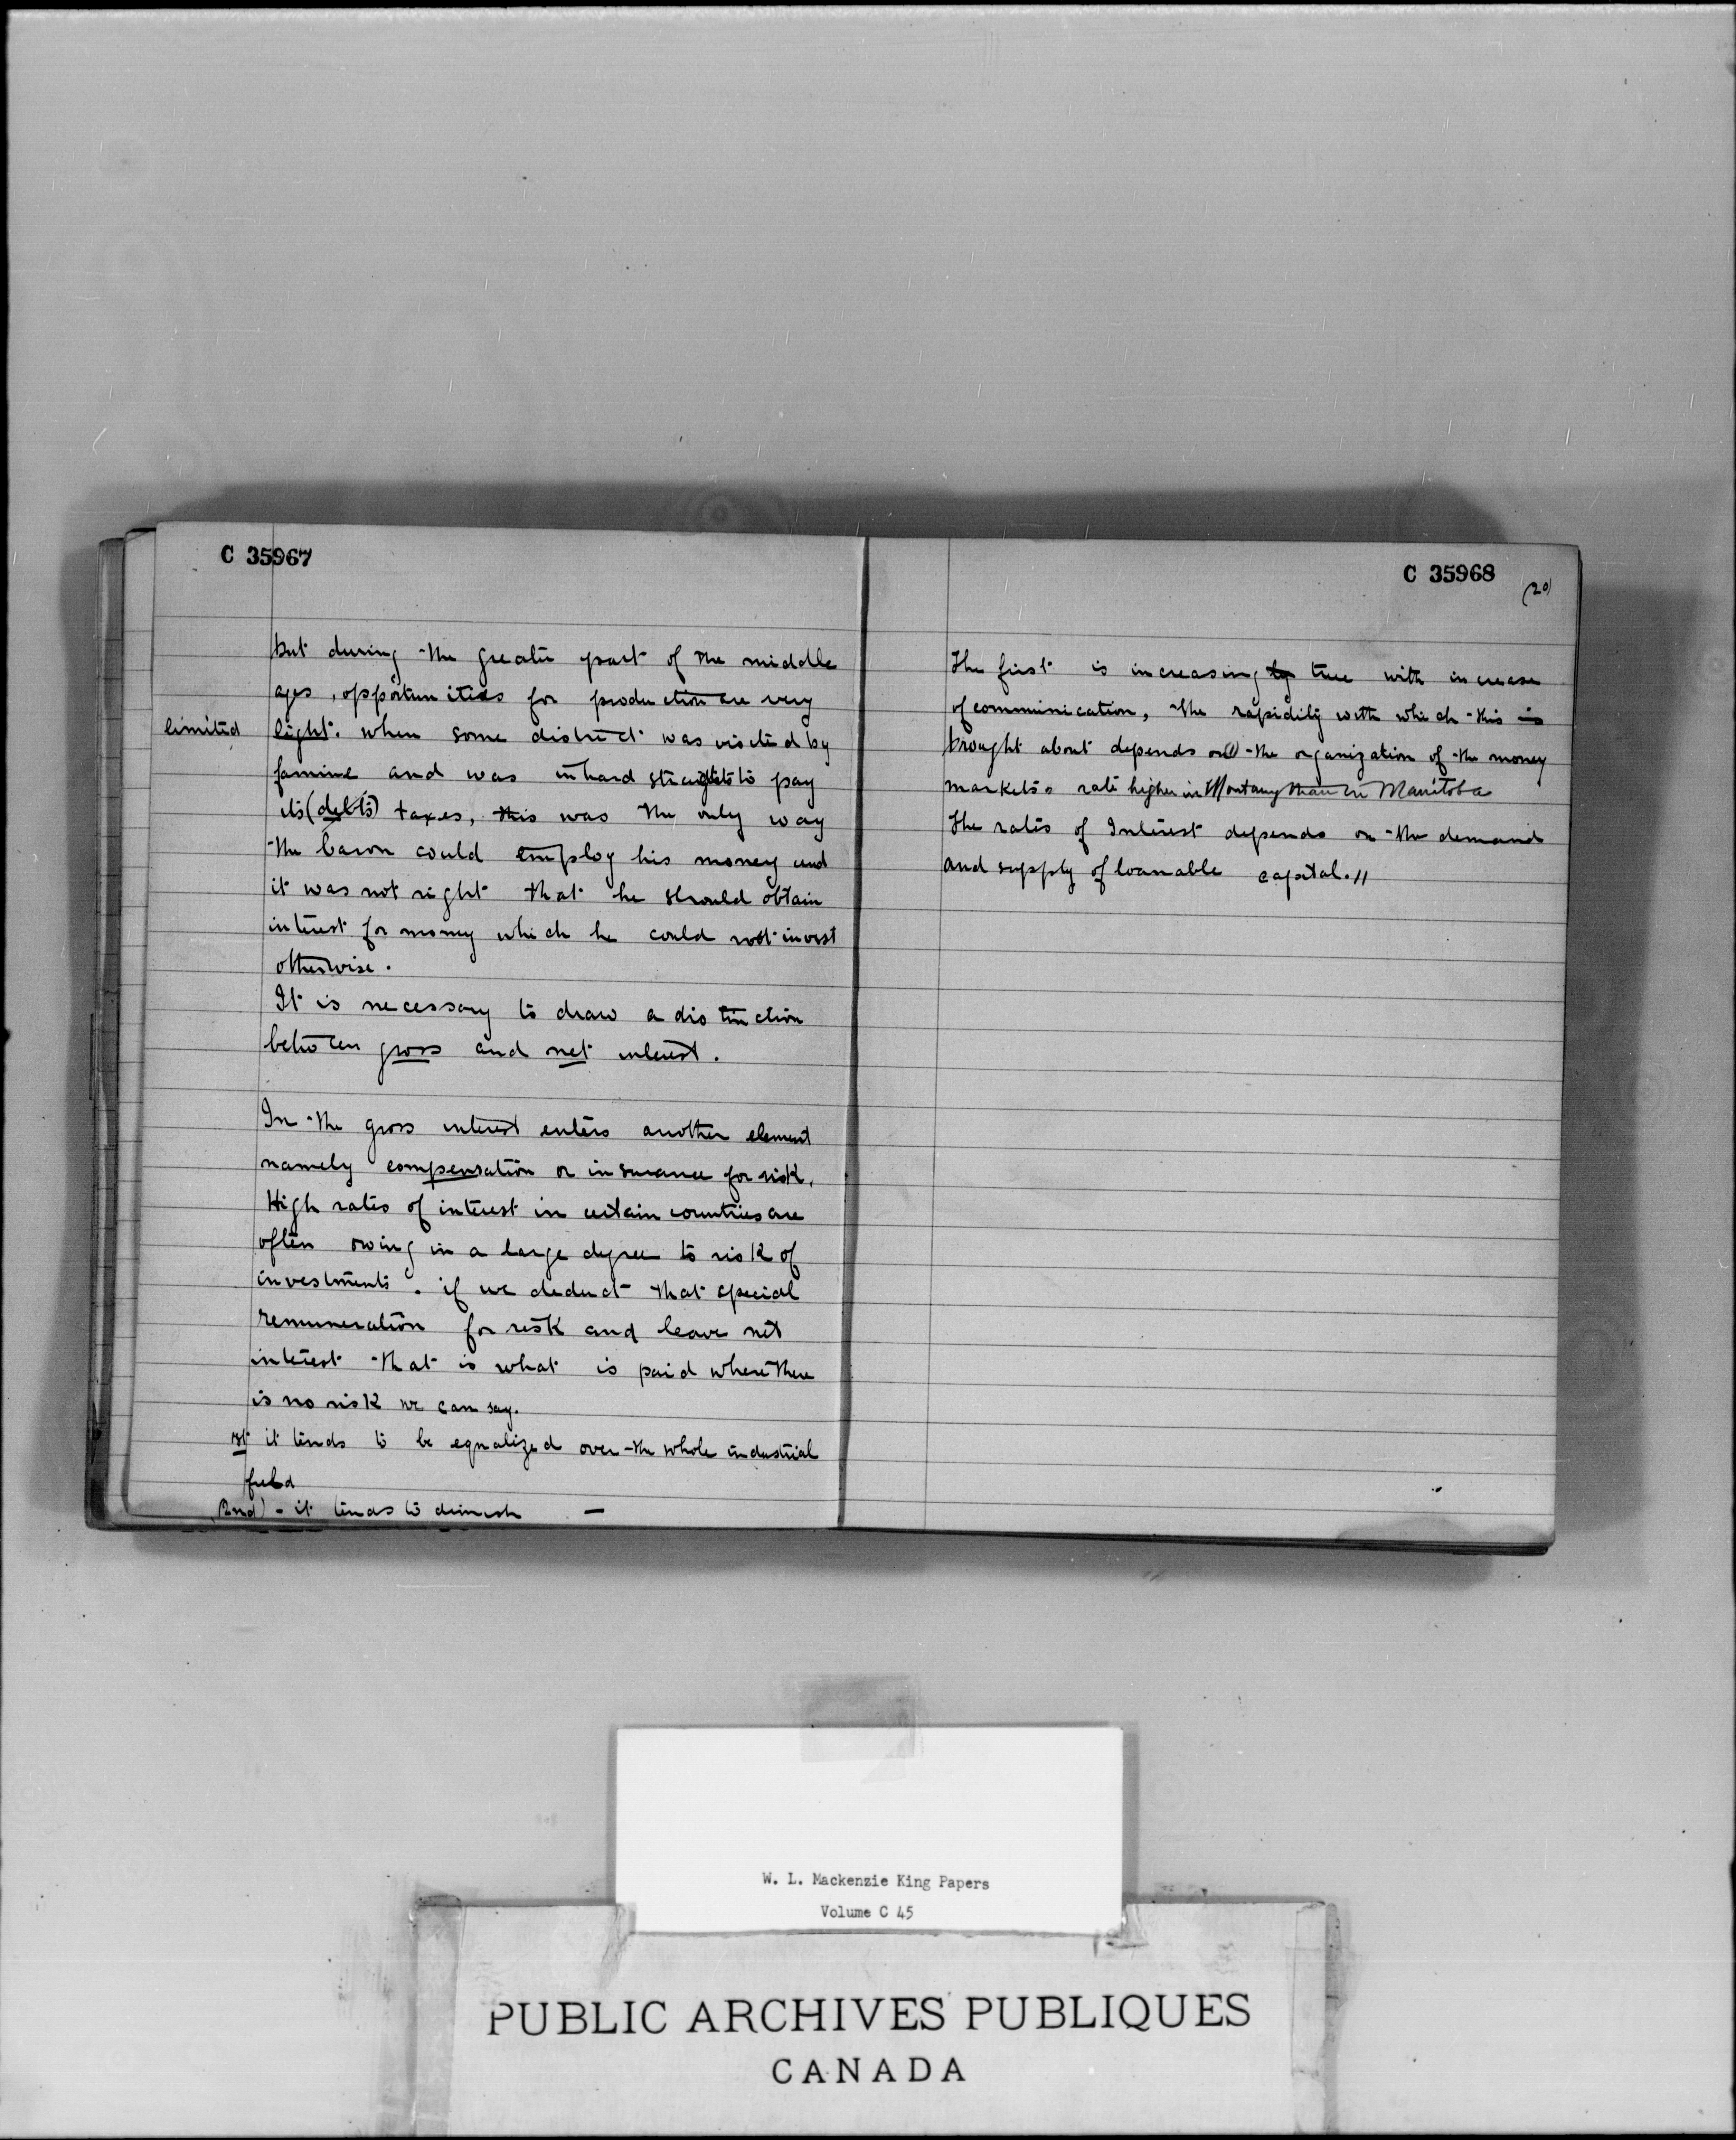 C 35967
but during the greater part of the middle
ages, opportunities for production are very
limited light. when some district was visited by
famine and was in hard straights to pay
its (debts) taxes, this was the only way
the baron could employ his money and
it was not right that he should obtain
interest for money which he could not invest
otherwise.
It is necessary to draw a distinction
between gross and net interest.
In the gross interest enters another element
namely compensation or insurance for risk.
High rates of interest in certain countries are
often owing in a large degree to risk of
investments. if we deduct that special
remuneration for risk and leave net
interest that is what is paid where there
is no risk we can say.
1st it tends to be equalized over the whole industrial
field
(2nd) - it tends to dimish —
C 35968
(20)
The first is increasing ly true with increase
of communication, the rapidity with which this is
brought about depends on the organization of the money
markets. rate higher in than in Manitoba
The rates of Interest depends on the demand
and supply of loanable capital. //
W. L. Mackenzie King Papers
Volume C 45
PUBLIC ARCHIVES PUBLIQUES
CANADA